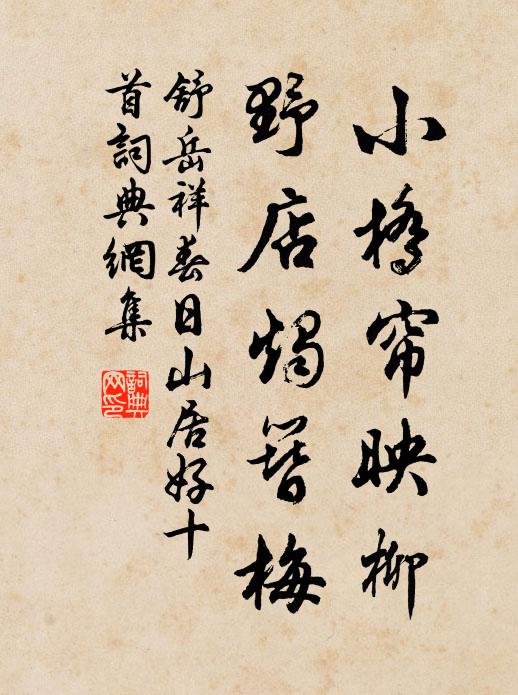 小橋帘映柳
野店燭簪梅
舒岳祥春日山居好十
首詞典網集
詞典網印